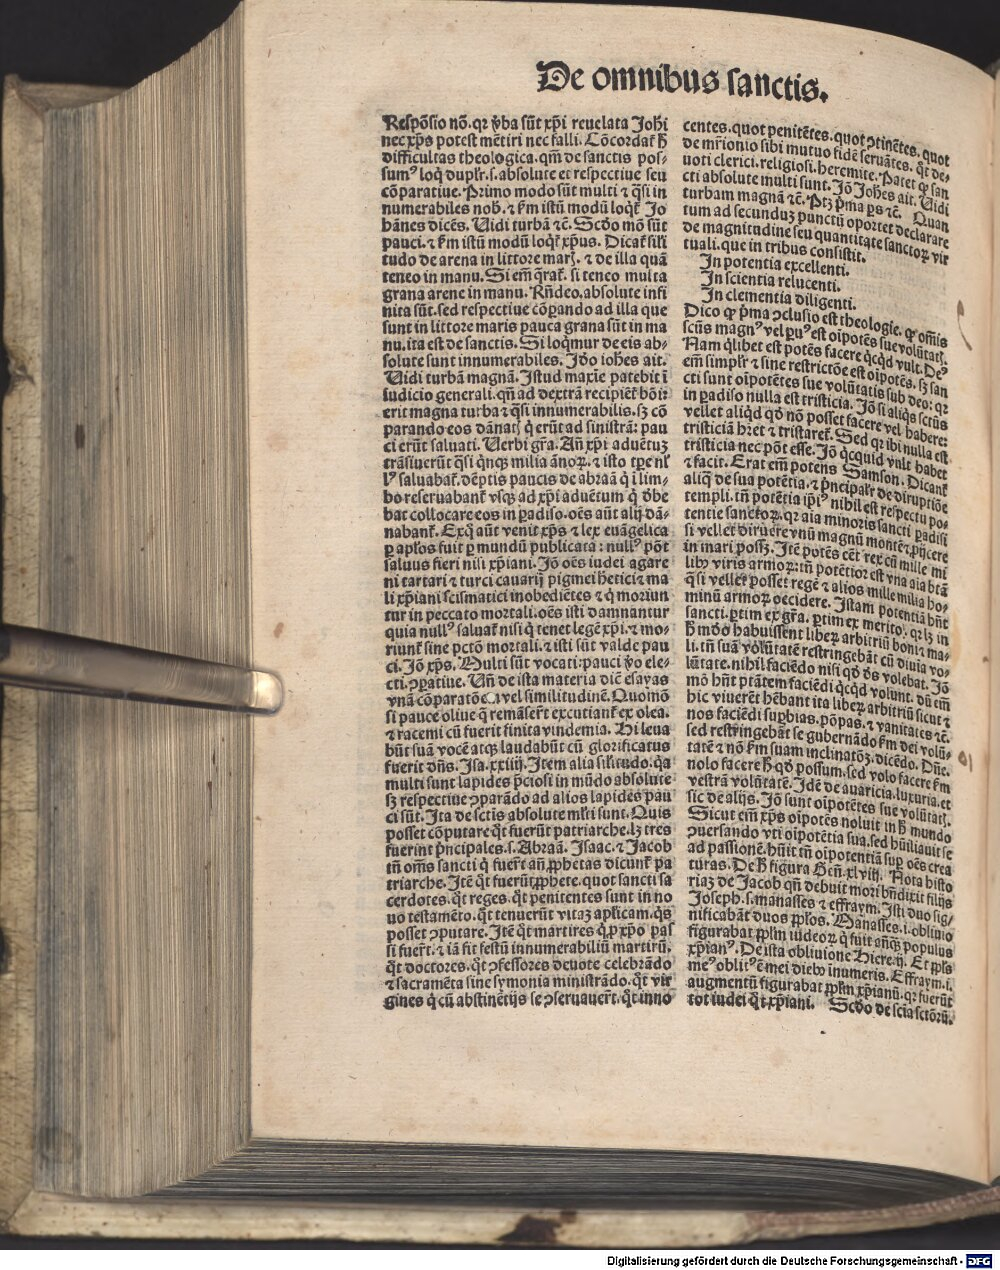 De omnibus sanctis.
Respõsio nõ. qr ṽba sũt xp̃i reuelata Joh̃i
nec xp̃s potest mẽtiri nec falli. Cõcordat h̃
difficultas theologica. qm̃ de sanctis pos-
sumꝰ loq̃ duplr̃. s. absolute et respectiue seu
cõparatiue. Primo modo sũt multi ⁊ q̃si in
numerabiles nob̃. ⁊ f̃m istũ modũ loq̃t Jo
hãnes dicẽs. Uidi turbã ⁊c̃. Scðo mõ sũt
pauci. ⁊ f̃m istũ modũ loq̃t xp̃us. Dicat sil̃i
tudo de arena in littore mar̃. ⁊ de illa quã
teneo in manu. Si em̃ q̃rat. si teneo multa
grana arene in manu. Rñdeo. absolute infi
nita sũt. sed respectiue cõpando ad illa que
sunt in littore maris pauca grana sũt in ma
nu. ita est de sanctis. Si loq̃mur de eis ab-
solute sunt innumerabiles. Jðo ioh̃es ait.
Uidi turbã magnã. Jstud maxĩe patebit ĩ
iudicio generali. qñ ad dextrã recipiẽt boĩ
erit magna turba ⁊ q̃si innumerabilis. sꝫ cõ
parando eos dãnatꝭ q̃ erũt ad sinistrã: pau
ci erũt saluati. Uerbi gr̃a. Añ xp̃i aduẽtuꝫ
trãsiuerũt q̃si q̃nqꝫ milia ãnoꝝ. ⁊ isto tp̃e nl̃
lꝰ saluabat. dẽptis paucis de abraã q̃ ĩ lim-
bo reseruabant vsqꝫ ad xp̃i aduẽtum q̃ ðbe
bat collocare eos in ꝑadiso. oẽs aũt alij dã-
nabant. Exq̃ aũt venit xp̃s ⁊ lex euãgelica
ꝑ apl̃os fuit ꝑ mundũ publicata: nullꝰ põt
saluus fieri nisi xp̃iani. Jõ oẽs iudei agare
ni tartari ⁊ turci cauarij pigmei hetici ⁊ ma
li xp̃iani scismatici inobediẽtes ⁊ q̃ moriun
tur in peccato mortali. oẽs isti damnantur
quia nullꝰ saluat nisi q̃ tenet legẽ xp̃i. ⁊ mo-
riunt sine pctõ mortali. ⁊ isti sũt valde pau
ci. Jõ xp̃s. Multi sũt vocati: pauci ṽo ele-
cti. ꝯꝑatiue. Uñ de ista materia diẽ esayas
vnã cõparatõem vel similitudinẽ. Quomõ
si pauce oliue q̃ remãserꝭt excutiant ex olea.
⁊ racemi cũ fuerit finita vindemia. Hi leua
bũt suã vocẽ atqꝫ laudabũt cũ glorificatus
fuerit dñs. Jsa. xxiiij. Jtem alia sil̃itudo. q̃a
multi sunt lapides p̃ciosi in mũdo absolute
sꝫ respectiue ꝯparãdo ad alios lapides pau
ci sũt. Jta de sctis absolute ml̃ti sunt. Quis
posset cõputare q̃t fuerũt patriarche. lꝫ tres
fuerint p̃ncipales. s. Abraã. Jsaac. ⁊ Jacob
tñ om̃s sancti q̃ fuer̃t añ ꝓphetas dicunt pa
triarche. Jtẽ q̃t fuerũt ꝓphete. quot sancti sa
cerdotes. q̃t reges. q̃t penitentes sunt in no
uo testamẽto. q̃t tenuerũt vitaꝫ apl̃icam. q̃s
posset ꝯputare. Jtẽ q̃t martires q̃ ꝓ xp̃o pas
si fuer̃t. ⁊ iã fit festũ innumerabiliũ martirũ.
q̃t doctores. q̃t ꝯfessores deuote celebrãdo
⁊ sacramẽta sine symonia ministrãdo. q̃t vir
gines q̃ cũ abstinẽtijs se ꝯseruauer̃t. q̃t inno
centes. quot penitẽtes. quot ꝯtinẽtes. quot
de mr̃ionio sibi mutuo fidẽ seruãtes. q̃t de-
uoti clerici. religiosi. heremite. Patet ꝙ san
cti absolute multi sunt. Jõ Joh̃es ait. Uidi
turbam magnã ⁊c̃. Ptꝫ p̃ma ps ⁊c̃. Quan
tum ad secunduꝫ punctũ oportet declarare
de magnitudine seu quantitate sanctoꝝ vir
tuali. que in tribus consistit.
In potentia excellenti.
In scientia relucenti.
In clementia diligenti.
Dico ꝙ p̃ma ꝯclusio est theologie. ꝙ om̃is
scũs magnꝰ vel ꝑuꝰ est oĩpotẽs sue volũtatꝭ.
Nam q̃libet est potẽs facere q̃cq̃d vult. Deꝰ
em̃ simpl̃r ⁊ sine restrictõe est oĩpotẽs. sꝫ san
cti sunt oĩpotẽtes sue volũtatis sub deo: qr
in ꝑadiso nulla est tristicia. Jõ si aliq̃s sctũs
vellet aliq̃d qð nõ posset facere vel habere:
tristiciã hret ⁊ tristaret. Sed qr ibi nulla est
tristicia nec põt esse. Jõ q̃cquid vult habet
⁊ facit. Erat em̃ potens Samson. Dicant
aliq̃ de sua potẽtia. ⁊ p̃ncipalr̃ de diruptiõe
templi. tñ potẽtia ip̃iꝰ nihil est respectu po-
tentie sanctoꝝ. qr aĩa minoris sancti ꝑadisi
si vellet diruere vnũ magnũ montẽ ⁊ ꝓijcere
in mari possꝫ. Jtẽ potẽs cẽt rex cũ mille mi
libꝰ viris armoꝝ: tñ potẽtior est vna aĩa btã
q̃si vellet posset regẽ ⁊ alios mille milia ho-
minũ armoꝝ occidere. Jstam potentiã hñt
sancti. ꝑtim ex gr̃a. ꝑtim ex merito. qr lꝫ in
h̃ mũdo habuissent liberꝝ arbitriũ boni ⁊ ma-
li. tñ suã volũtatẽ restringebãt cũ diuia vo-
lũtate. nihil faciẽdo nisi qð ðs volebat. Jõ
mõ hñt ptãtem faciẽdi q̃cq̃d volunt. dũ em̃
hic viuerẽt hẽbant ita liberꝝ arbitriũ sicut ⁊
nos faciẽdi suꝑbias. põpas. ⁊ vanitates ⁊c̃.
sed restringebãt se gubernãdo f̃m dei volũ-
tatẽ ⁊ nõ f̃m suam inclinatõꝫ. dicẽdo. Dñe.
nolo facere h̃ qð possum. sed volo facere f̃m
vestrã volũtatẽ. Jdẽ de auaricia. luxuria. et
sic de alijs. Jõ sunt oĩpotẽtes sue volũtatꝭ.
Sicut em̃ xp̃s oĩpotẽs noluit in h̃ mundo
ꝯuersando vti oĩpotẽtia sua. sed hũiliauit se
ad passionẽ. hũit tñ oĩpotentiã sup oẽs crea
turas. De h̃ figura Geñ. xlviij. Nota histo
riaꝫ de Jacob qñ debuit mori bñdixit filijs
Joseph. s. manasses ⁊ effraym. Jsti duo sig-
nificabãt duos ppl̃os. Manasses. i. obliuio
figurabat ppl̃m iudeoꝝ q̃ fuit añqꝫ populus
xp̃ianꝰ. De ista obliuione Hiere. ij. Et ppl̃s
meꝰ oblitꝰ ẽ mei diebꝰ inumeris. Effraym. i.
augmentũ figurabat ppl̃m xp̃ianũ. qr fuerũt
tot iudei q̃t xp̃iani. Scðo de scĩa sctõrũ.
Digitalisierung gefördert durch die Deutsche Forschungsgemeinschaft - DFG